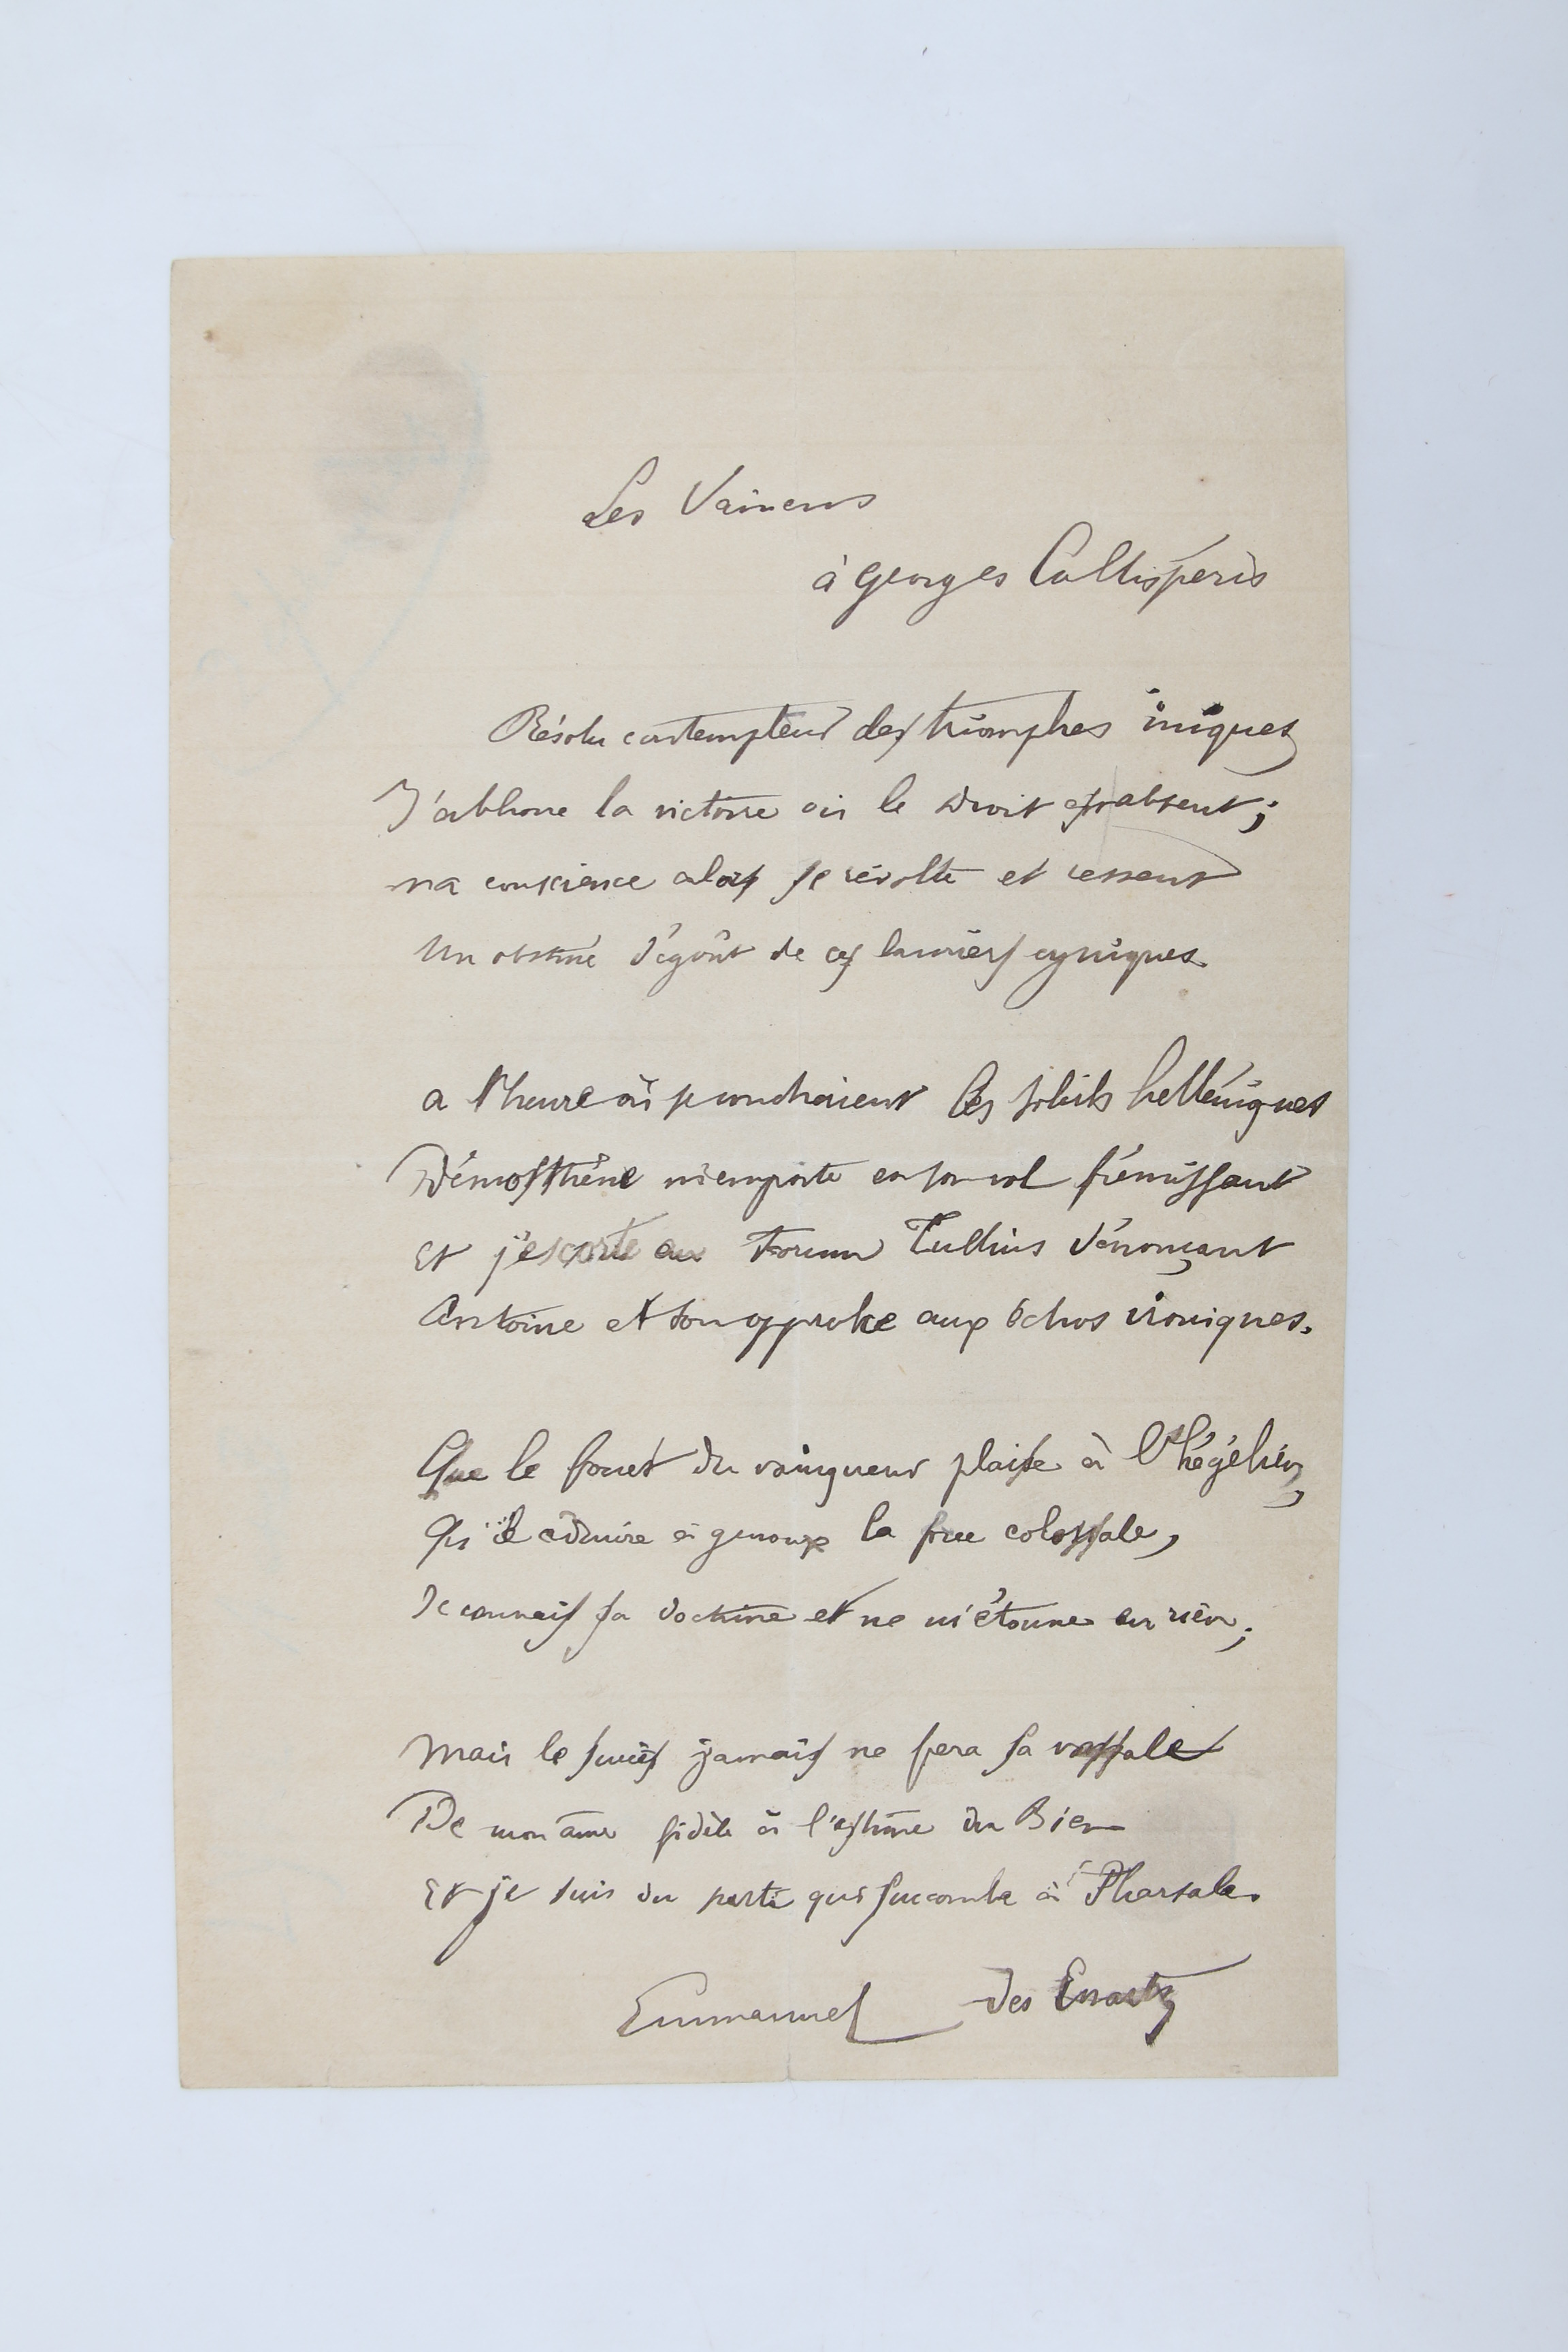 Les Vaincus
à Georges Callispéris
Résolu contempteur des triomphes iniques
J'abhorre la victoire où le Droit est absent ;
Ma conscience alors se révolte et ressent
Un obstiné dégoût de ces lauriers cyniques.
A l'heure où se couchaient les soleils helléniques
Démosthène m'emporte en son vol frémissant
Et j'escorte au Forum Tullius dénonçant
Antoine et son opprobre aux échos ironiques.
Que le fouet du vainqueur plaise à l'hégélien,
Qu'il admire à genoux la force colossale,
Je connais sa doctrine et ne m'étonne en rien ;
Mais le succès jamais ne fera sa vassale
De mon âme fidèle à l'estime du Bien
Et je suis du parti qui succombe à Pharsale.
Emmanuel des Essarts